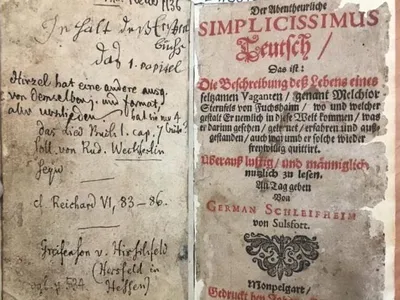 1136
Inhalt des Ersten
Buchs
das 1. capitel
Hirzel hat eine andere ausg.
von demselben j. und format,
also worlieden
das lied Buch 1. cap. 7
soll von Rud. Weckherlin
seyn
cf Reichard VI, 83–86.
Grafschaft v. Hirschfeld
(Hersfeld in
Hessen)
p. 524.
Der Abentheurliche
SIMPLICISSIMUS
Teutsch /
Das ist:
Die Beschreibung deß Lebens eines
seltzamen Vaganten / genant Melchior
Sternfels von Fuchshaim / wo und welcher
gestalt Er nemlich in diese Welt kommen / was
er darinn gesehen / gelernet / erfahren und auß-
gestanden / auch warumb er solche wieder
freywillig quittirt.
Überauß lustig / und männiglich
nutzlich zu lesen.
An Tag geben
Von
GERMAN SCHLEIFHEIM
von Sulsfort.
Monpelgart /
Gedruckt bey